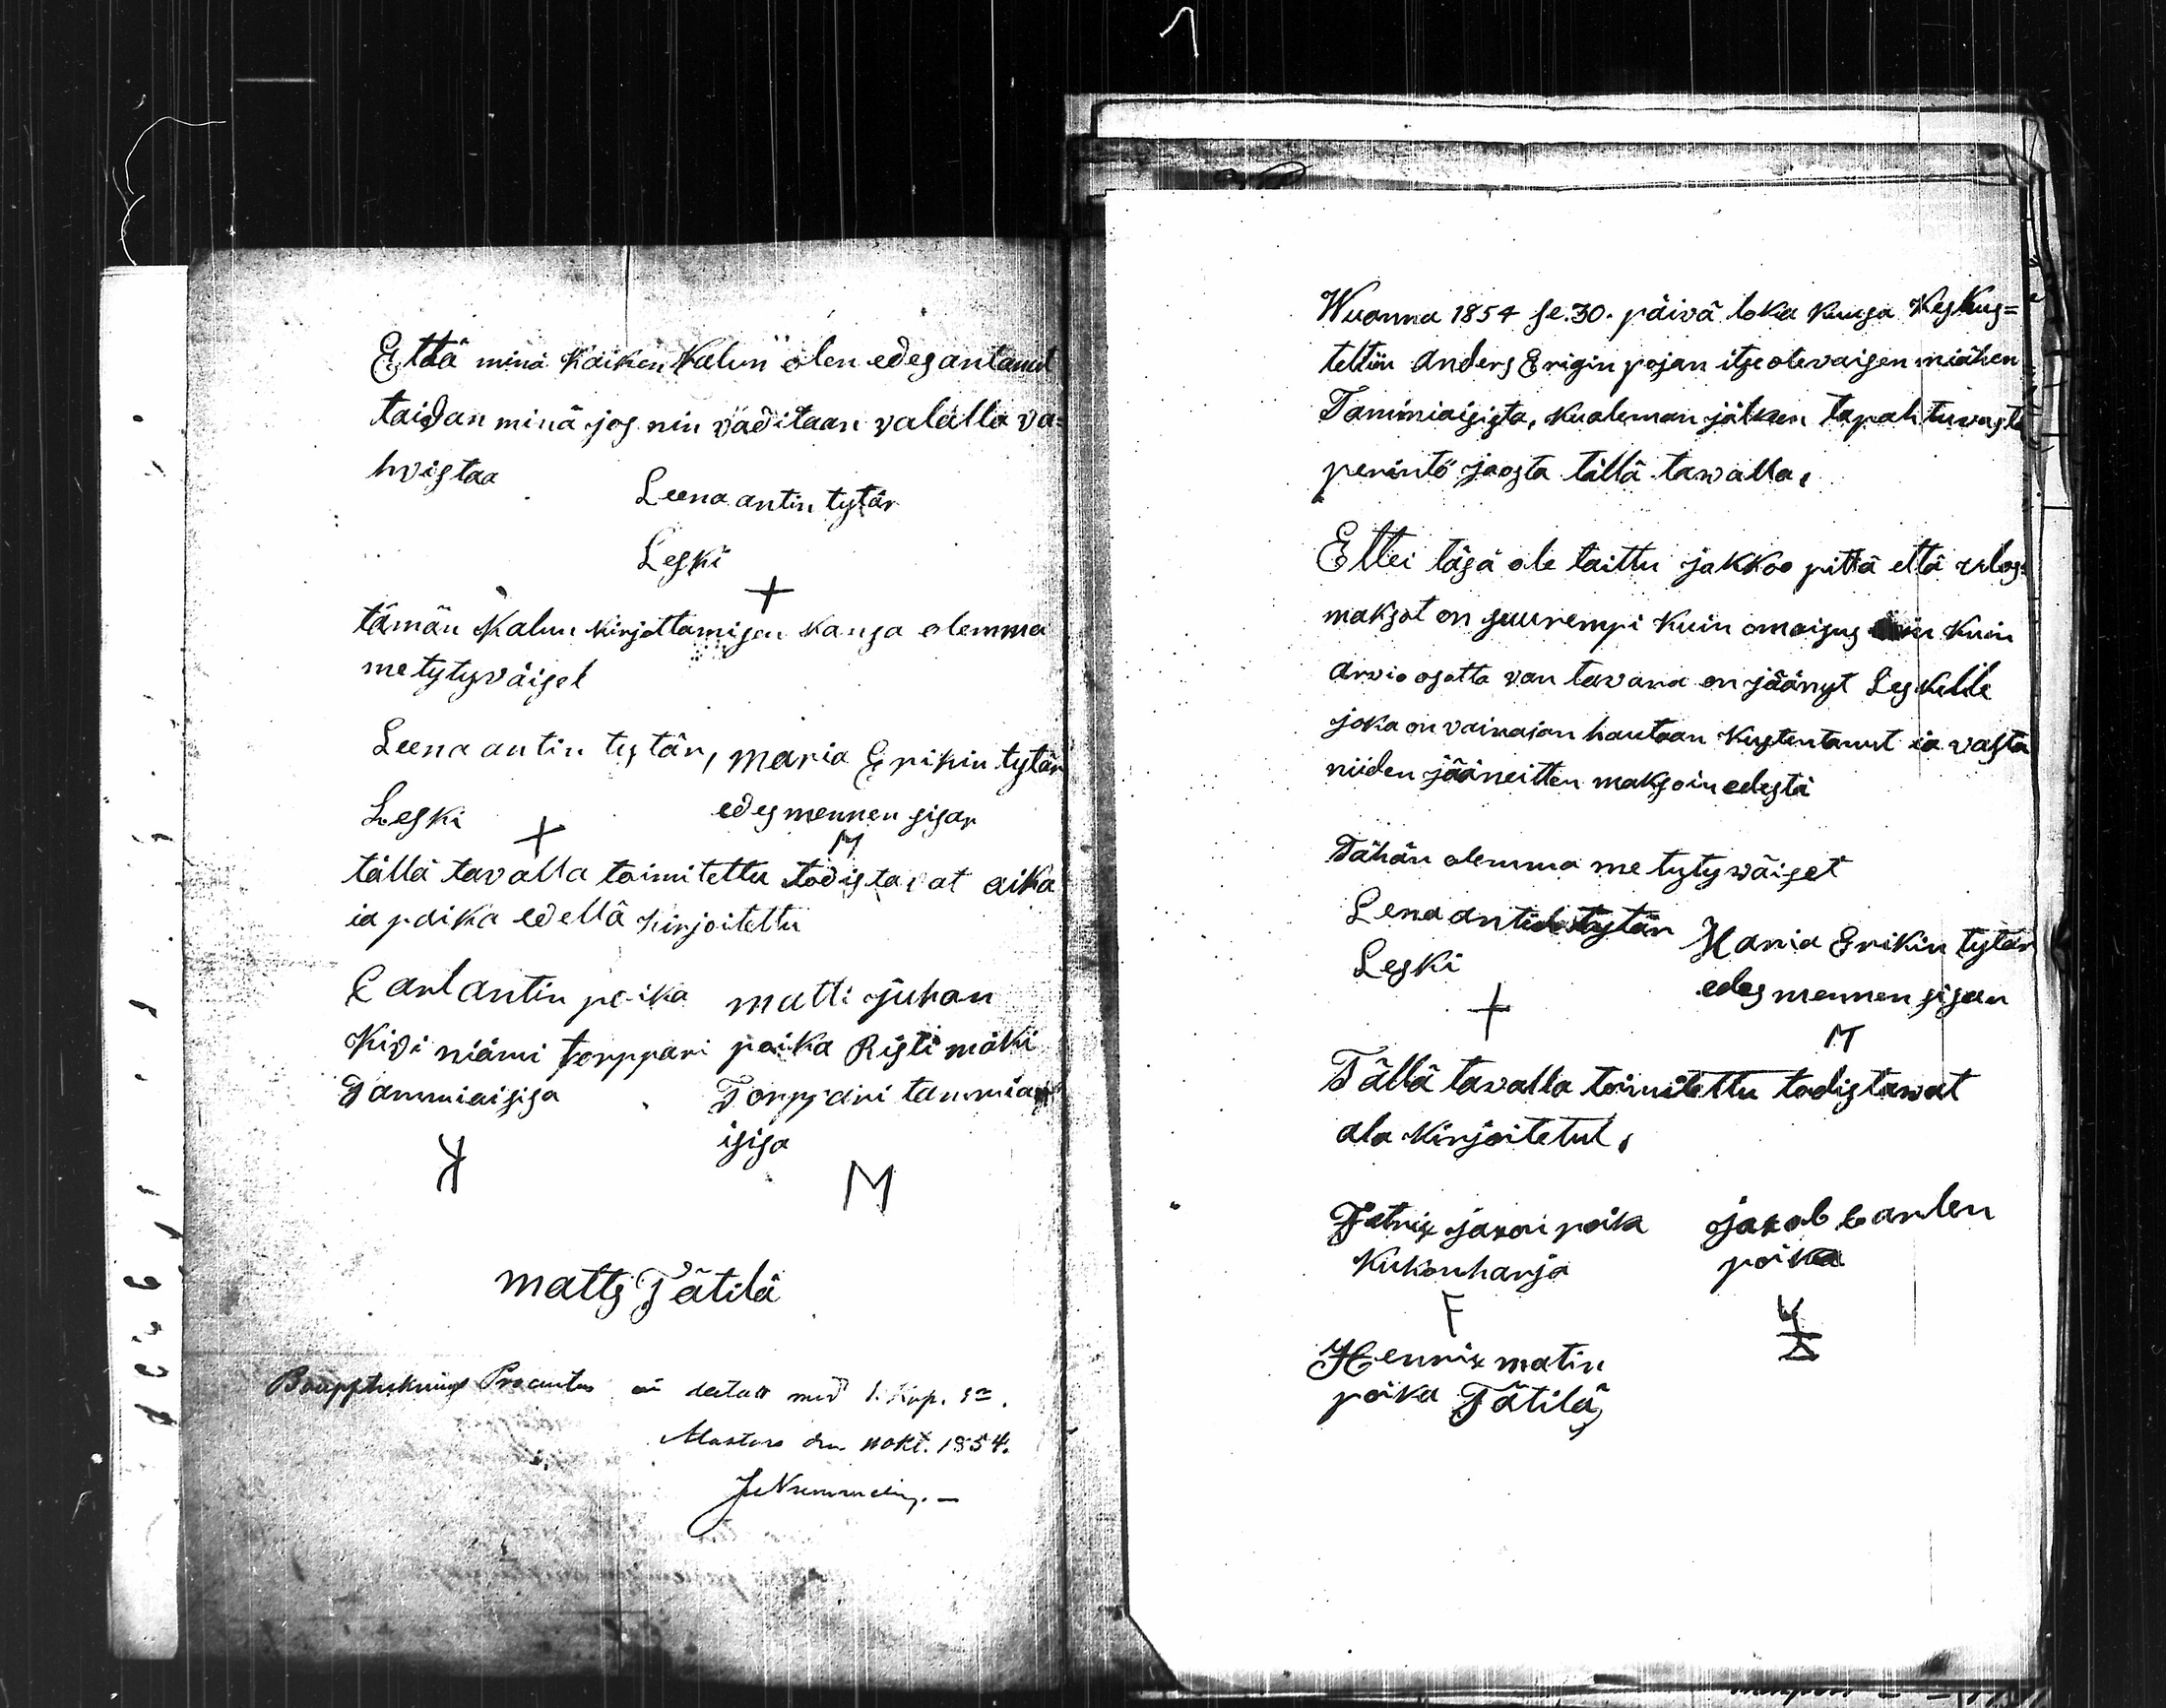 Että minä Kaiken Kalun olen edesantanut
taidan minä jos nin väditaan valalla va=
hvistaa
Leena antin tytär
Leski
+
tämän Kalun kirjottamisen kansa olemma
me tytyväiset
Leena antin tytär, maria Erikin tytär
Leski + edesmennen sisar
M
tällä tavalla toimitettu todistavat aika
ia paika edellä kirjoitettu
Carl antin poika matti juhan
Kivi niämi torppari poika Risti mäki
Tammiaisisa Torppari tammia
isisa
M
matts Tätilä
Bouppteckning Procenten
den okt. 1854.
J Nummelin. —
1
Wuonna 1854 se. 30. päivä loka kuusa Keskus=
teltiin Anders Erigin pojan itse olevaisen miähen
Taminiaisista, Kualeman jälken tapahtuvasta
perintö jaosta tällä tawalla,
Ettei täsä ole taittu jakkoo pittä että ulos
maksot on suurempi kuin omaisus kuin
arvio osatta van tavara on jäänyt Leskelle
joka on vainajan hautaan kustentanut ia vasta
niiden jääneitten maksoin edestä
Tähän olemma me tytywäiset
Lena antin tytär Maria Erikin tytär
Leski edesmennen sisar
+ M
Tällä tavalla toimitettu todistawat
ala kirjoitetut,
jakob Carlen
Kukonharja poika
F
Henrik matin
poika Tätilä